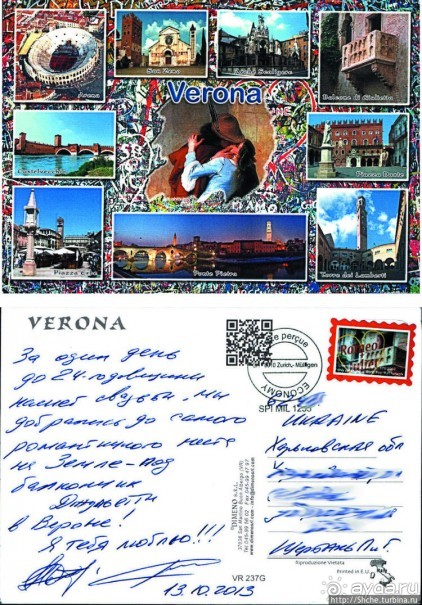 Arena
San Zeno
Arche Scaligere
Balcone di Giulietta
Verona
Castelvecchio
Piazza Dante
Piazza Erbe
Ponte Pietra
Torre dei Lamberti
VERONA
За один день
до 24-годовщины
нашей свадьбы, мы
добрались до самого
романтичного места
на Земле - под
балкончик
Джульетты
в Вероне!
Я тебя люблю!!!
13.10.2013
perçue
2010 Zürich-Mülligen
ECONOMY
SPI MIL 1255
Romeo
UKRAINE
Харьковская обл
Щербань П.Г.
DIMENO s.a.s.
37036 San Martino Buon Albergo (VR)
VR 237G
Riproduzione Vietata
Printed in E.U.
ayda.ru
http://5niche.turbina.ru